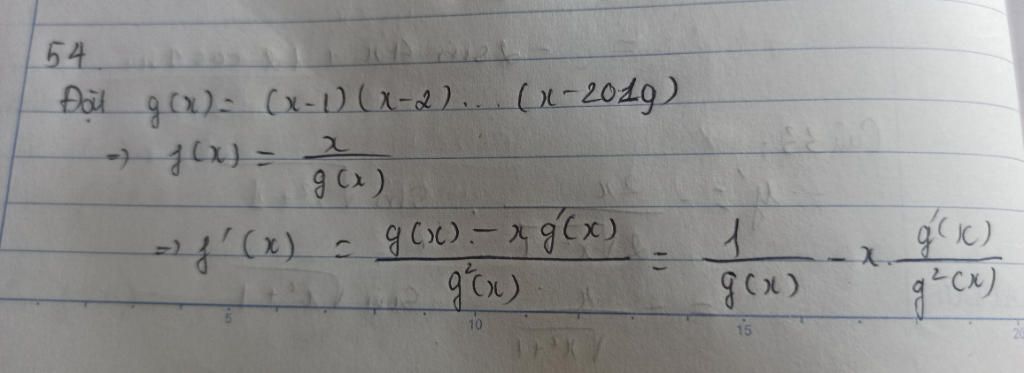 54
Đặt g(x) = (x-1)(x-2)... (x-2019)
=> f(x) = x / g(x)
=> f'(x) = (g(x) - x g'(x)) / g²(x) = 1 / g(x) - x. g'(x) / g²(x)
5 10 15 20